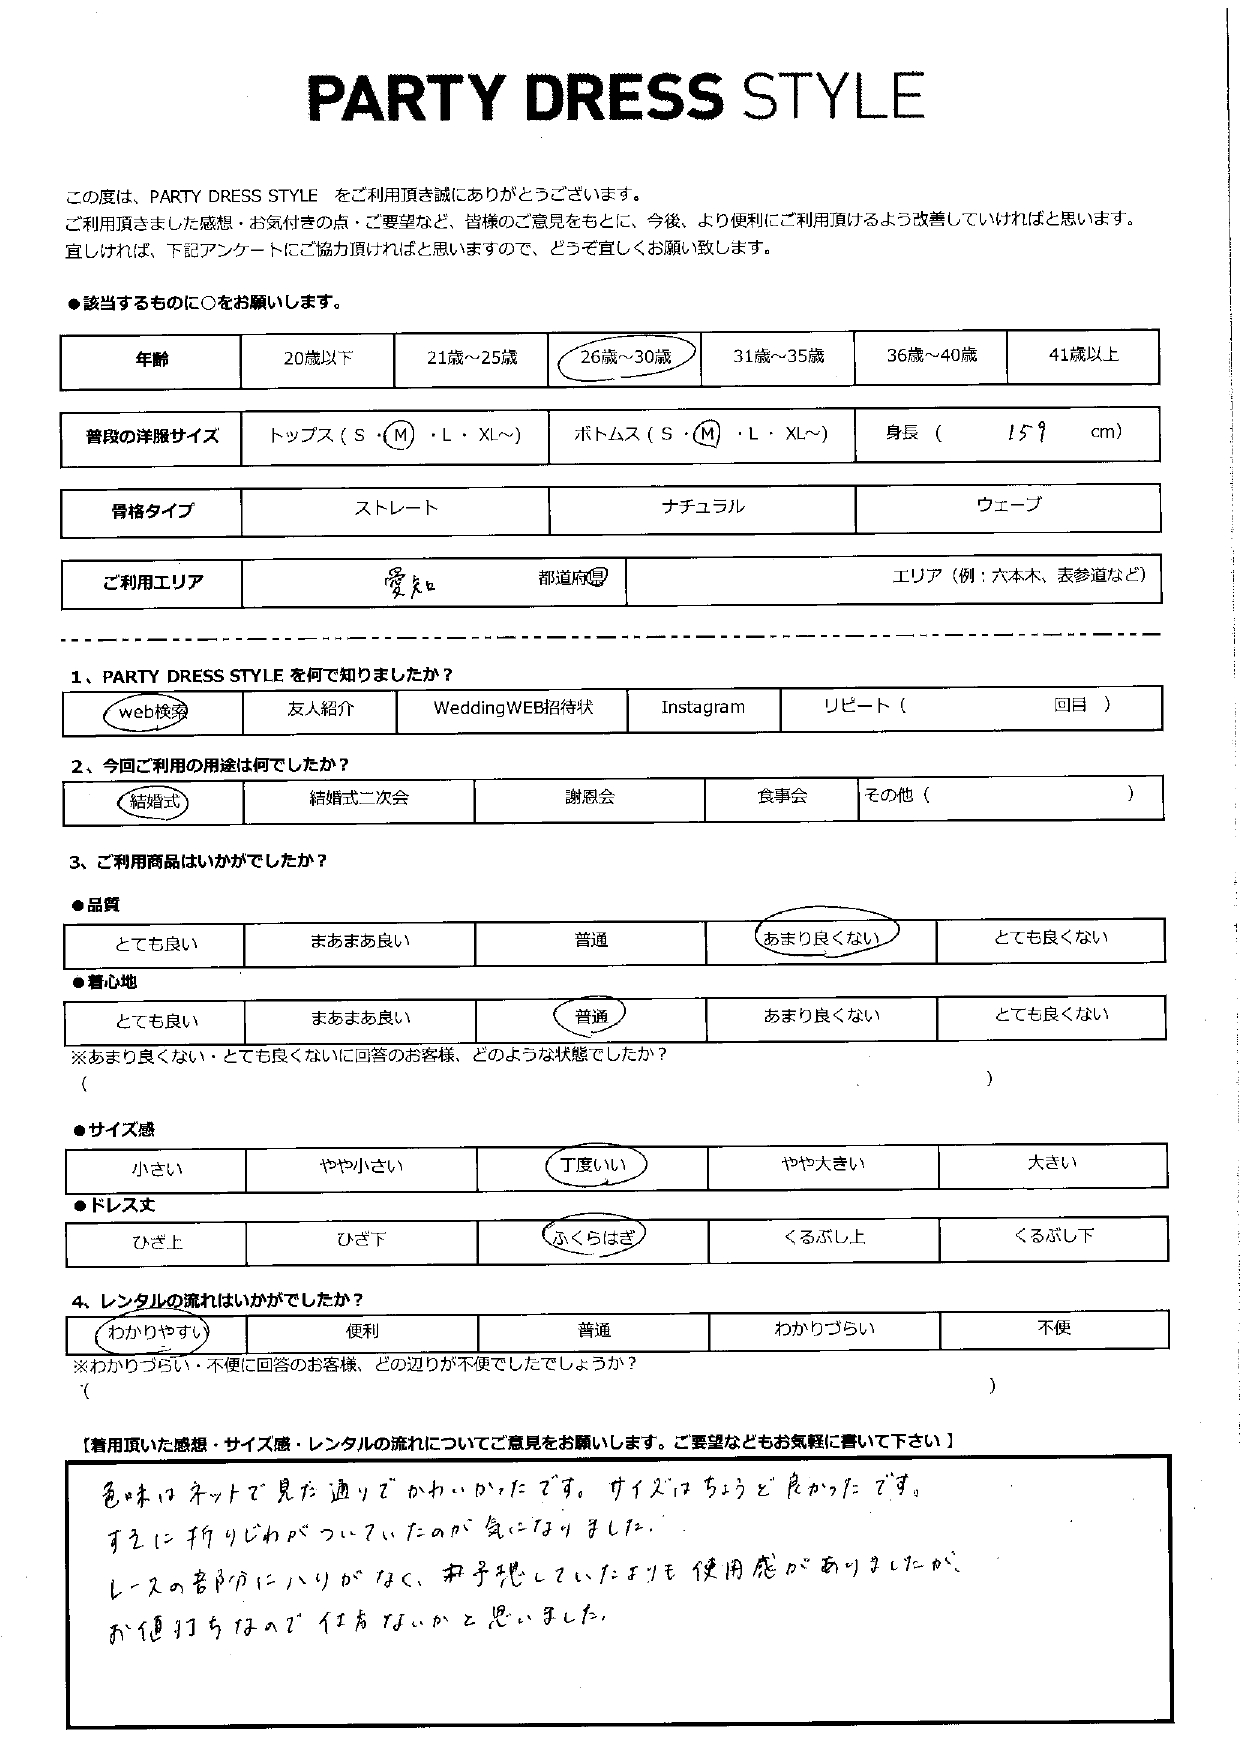 PARTY DRESS STYLE
この度は、PARTY DRESS STYLE をご利用頂き誠にありがとうございます。
ご利用頂きました感想・お気付きの点・ご要望など、皆様のご意見をもとに、今後、より便利にご利用頂けるよう改善していければと思います。
宜しければ、下記アンケートにご協力頂ければと思いますので、どうぞ宜しくお願い致します。
●該当するものに○をお願いします。
年齢 20歳以下 21歳～25歳 26歳～30歳 31歳～35歳 36歳～40歳 41歳以上
普段の洋服サイズ トップス（ S ・ M ・ L ・ XL～） ボトムス（ S ・ M ・ L ・ XL～） 身長 （ 159 cm）
骨格タイプ ストレート ナチュラル ウェーブ
ご利用エリア 愛知 都道府県 エリア（例：六本木、表参道など）
1、PARTY DRESS STYLE を何で知りましたか？
web検索 友人紹介 WeddingWEB招待状 Instagram リピート（ 回目 ）
2、今回ご利用の用途は何でしたか？
結婚式 結婚式二次会 謝恩会 食事会 その他（ ）
3、ご利用商品はいかがでしたか？
●品質
とても良い まあまあ良い 普通 あまり良くない とても良くない
●着心地
とても良い まあまあ良い 普通 あまり良くない とても良くない
※あまり良くない・とても良くないに回答のお客様、どのような状態でしたか？
（ ）
●サイズ感
小さい やや小さい 丁度いい やや大きい 大きい
●ドレス丈
ひざ上 ひざ下 ふくらはぎ くるぶし上 くるぶし下
4、レンタルの流れはいかがでしたか？
わかりやすい 便利 普通 わかりづらい 不便
※わかりづらい・不便に回答のお客様、どの辺りが不便でしたでしょうか？
（ ）
【着用頂いた感想・サイズ感・レンタルの流れについてご意見をお願いします。ご要望などもお気軽に書いて下さい 】
色味はネットで見た通りでかわいかったです。サイズはちょうど良かったです。
すそに折りじわがついていたのが気になりました。
レースの部分にハリがなく、予想していたよりも使用感がありましたが、
お値打ちなので仕方ないかと思いました。